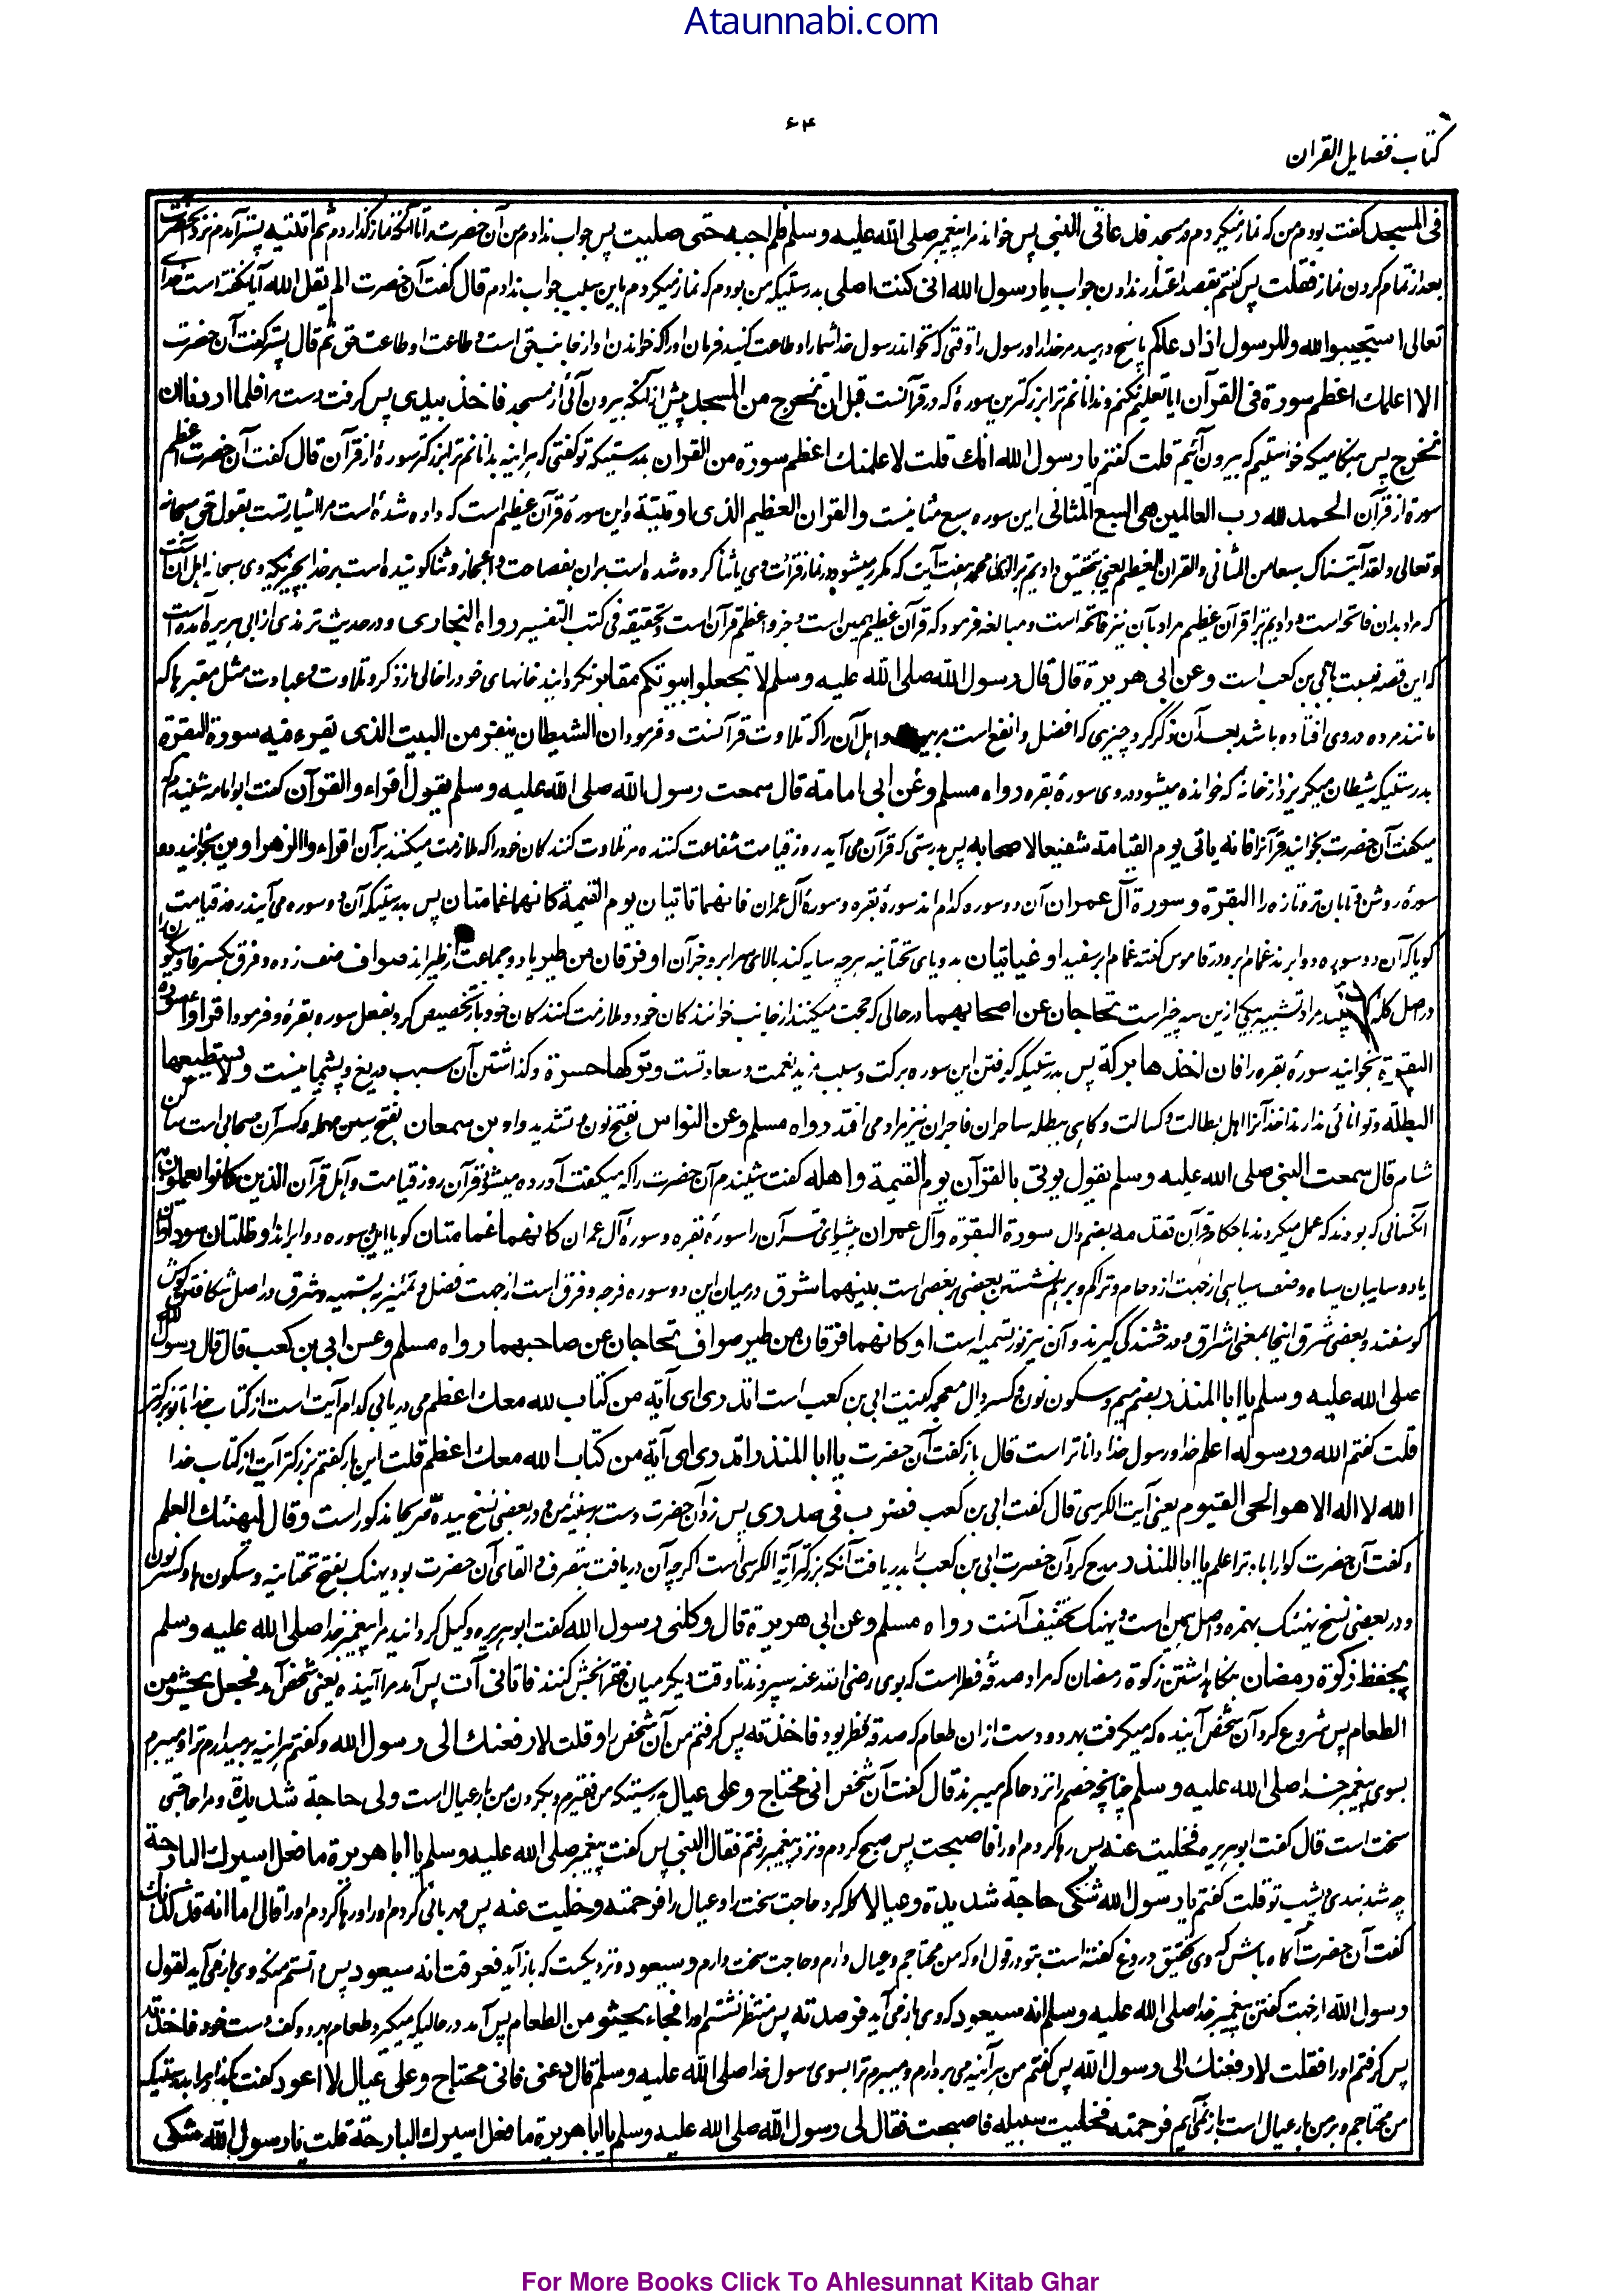 Ataunnabi.com
۶۴
كتاب فضایل القران
فی المسجد گفت بودم من که نماز میکردم در مسجد فدعانی النبی پس خواند مرا پیغمبر صلی الله علیه وسلم فلم اجبه حتی صلیت پس جواب ندادم من آن حضرت را تا آنکه نماز گذاردم ثم اتیته پستر آمدم نزد آنحضرت
بعد از تمام کردن نماز فقلت پس گفتم بقصد اعتذار ندادن جواب یا رسول الله انی کنت اصلی بدرستیکه من بودم که نماز میکردم باین سبب جواب ندادم قال گفت آن حضرت الم یقل الله آیا نگفته است خدای
تعالی استجیبوا لله وللرسول اذا دعاکم پاسخ دهید مر خدا را و رسول را وقتی که بخواند رسول خدا شما را و طاعت کنید فرمان او را که خواندن او از جانب حق است و طاعت او طاعت حق ثم قال پستر گفت آن حضرت
الا اعلمك اعظم سورة فی القرآن آیا تعلیم نکنم و ندانانم ترا بزرگترین سورهٔ که در قرآنست قبل ان تخرج من المسجد پیش از آنکه بیرون آئی از مسجد فاخذ بیدی پس گرفت دست مرا فلما اردنا ان
نخرج پس هنگامیکه خواستیم که بیرون آئیم قلت گفتم یا رسول الله انك قلت لاعلمنك اعظم سورة من القران بدرستیکه تو گفتی که هرآینه بدانانم ترا بزرگتر سورهٔ از قرآن قال گفت آن حضرت اعظم
سورة از قرآن الحمد لله رب العالمین هی السبع المثانی این سوره سبع مثانیست والقران العظیم الذی اوتیته و این سوره قرآن عظیم است که داده شده است مرا اشارتست بقول حق سبحانه
و تعالی ولقد آتیناك سبعا من المثانی والقران العظیم یعنی بتحقیق دادیم ترا ای محمد هفت آیت که مکرر میشود در نماز قرأت وی یا ثنا کرده شده است بران بفصاحت و اعجاز و ثنا گوینده است بر خدا بچیزیکه وی سبحانه اهل آنست
که مراد بدان فاتحه است و دادیم ترا قرآن عظیم مراد بآن نیز فاتحه است و مبالغه فرمود که قرآن عظیم همین است و جزو اعظم قرآن است و تحقیقه فی کتب التفسیر رواه البخاری و در حدیث ترمذی از ابی هریره آمده است
که این قصه نسبت بابی بن کعب است وعن ابی هریرة قال قال رسول الله صلی الله علیه وسلم لا تجعلوا بیوتکم مقابر نگردانید خانهای خود را خالی از ذکر و تلاوت و عبادت مثل مقبرها که
مانند مرده در وی افتاده باشد بعد آن ذکر کرد چیزی که افضل و انفع است مر بیوت و اهل آن را که تلاوت قرآنست و فرمود ان الشیطان ینفر من البیت الذی یقرء فیه سورة البقرة
بدرستیکه شیطان میگریزد از خانهٔ که خوانده میشود در وی سورهٔ بقره رواه مسلم وعن ابی امامة قال سمعت رسول الله صلی الله علیه وسلم یقول اقراء والقرآن گفت ابوامامه شنیدم که
میگفت آن حضرت بخوانید قرآنرا فانه یاتی یوم القیامة شفیعا لاصحابه پس بدرستی که قرآن می آید روز قیامت شفاعت کننده مر تلاوت کنندگان خود را که ملازمت میکنند بر آن اقراء والزهراوین بخوانید دو
سورهٔ روشن و تابان تر و تازه را البقرة وسورة آل عمران آن دو سوره کدام اند سورهٔ بقره و سورهٔ آل عمران فانهما تاتیان یوم القیمة کانهما غمامتان پس بدرستیکه آن دو سوره می آیند روز قیامت
گویا که آن دو سوره دو ابرند غمام ابر و در قاموس گفته غمام ابر سفید او غیایتان بدو یای تحتانیه هرچه سایه کند بالای سر ابر و جز آن او فرقان من طیر یا دو جماعت از طیر اند صواف صف زده و فرق بکسر فا و سکون را
در اصل کله مراد تشبیه بیکی ازین سه چیز است تحاجان عن اصحابهما در حالی که حجت میکنند از جانب خوانندگان خود و ملازمت کنندگان خود باز تخصیص کرد بفضل سوره بقره و فرمود اقراوا سورة
البقرة بخوانید سورهٔ بقره را فان اخذها برکة پس بدرستیکه گرفتن این سوره برکت و سبب مزید نعمت و سعادتست وترکها حسرة و گذاشتن آن سبب دریغ و پشیمانیست ولا یستطیعها
البطلة و توانائی ندارند اخذ آنرا اهل بطالت و کسالت و کاهلی بطله ساحران فاجران نیز مراد می افتد رواه مسلم وعن النواس بفتح نون و تشدید واو بن سمعان بفتح سین مهمله و کسر آن صحابی است ساکن
شام قال سمعت النبی صلی الله علیه وسلم یقول یوتی بالقرآن یوم القیمة واهله گفت شنیدم آن حضرت را که میگفت آورده میشود قرآن روز قیامت و اهل قرآن الذین کانوا یعملون به
آنکسانی که بودند که عمل میکردند باحکام قرآن تقدمه بضم دال سورة البقرة وآل عمران پیشوای قرآن را سورهٔ بقره و سورهٔ آل عمران کانهما غمامتان گویا این دو سوره دو ابراند او ظلتان سوداوان
یا دو سایبان سیاه وصف سیاهی از جهت ازدحام و تراکم و برهم نشستن بعضی بر بعضی است بینهما شرق درمیان این دو سوره فرجه و فرق است از جهت فصل و تمییز به بسمیه و شرق در اصل شگافتن گوش
گوسفند و بعضی شرق اینجا بمعنی اشراق و درخشندگی گیرند و آن نیز نور تسمیه است او کانهما فرقان من طیر صواف تحاجان عن صاحبهما رواه مسلم وعن ابی بن کعب قال قال رسول الله
صلی الله علیه وسلم یا ابا المنذر بضم میم و سکون نون و کسر ذال معجمه کنیت ابی بن کعب است اتدری ای آیة من کتاب لله معك اعظم می دریابی کدام آیت است از کتاب خدا با تو بزرگتر
قلت گفتم الله ورسوله اعلم خدا و رسول خدا داناتر است قال باز گفت آن حضرت یا ابا المنذر اتدری ای آیة من کتاب الله معك اعظم قلت این بار گفتم بزرگتر آیت از کتاب خدا
الله لا اله الا هو الحی القیوم یعنی آیت الکرسی قال گفت ابی بن کعب فضرب فی صدری پس زد آن حضرت دست بر سینهٔ من و در بعضی نسخ بیده صریحا مذکور است وقال لیهنئك العلم
و گفت آن حضرت گوارا باد ترا علم یا ابا المنذر مدح کرد آن حضرت ابی بن کعب را بدریافت آنکه بزرگتر آیة الکرسی است اگرچه آن دریافت بتصرف و القای آن حضرت بود یهنك بفتح تحتانیه و سکون ها و کسر نون
و در بعضی نسخ یهنئك بهمزه و اصل همین است و یهنك تخفیف آنست رواه مسلم وعن ابی هریرة قال وکلنی رسول الله گفت ابوهریره وکیل گردانید مرا پیغمبر خدا صلی الله علیه وسلم
بحفظ زکوة رمضان بنگاهداشتن زکوة رمضان که مراد صدقهٔ فطر است که بوی رضی الله عنه سپردند تا وقت دیگر میان فقرا بخش کنند فاتانی آت پس آمد مرا آینده یعنی شخص آمد فجعل یحثو من
الطعام پس شروع کرد آن شخص آینده که میگرفت بهر دو دست ازان طعام که صدقهٔ فطر بود فاخذته پس گرفتم من آن شخص را وقلت لارفعنك الی رسول الله و گفتم هرآینه برمیدارم ترا و میبرم
بسوی پیغمبر خدا صلی الله علیه وسلم چنانچه خصم را نزد حاکم میبرند قال گفت آن شخص انی محتاج وعلی عیال بدرستیکه من فقیرم و بگردن من بار عیال است ولی حاجة شدیدة و مرا حاجتی
سخت است قال گفت ابوهریره فخلیت عنه پس رها کردم او را فاصبحت پس صبح کردم و نزد پیغمبر رفتم فقال النبی پس گفت پیغمبر صلی الله علیه وسلم یا ابا هریرة ما فعل اسیرك البارحة
چه شد بندی دیشب تو قلت گفتم یا رسول الله شکی حاجة شدیدة وعیالا گله کرد حاجت سخت را و عیال را فرحمته وخلیت عنه پس مهربانی کردم او را و رها کردم او را قال اما انه قد کذبك
گفت آن حضرت آگاه باش که وی بتحقیق دروغ گفته است بتو در قول او که من محتاجم و عیال دارم و حاجت سخت دارم وسیعود و نزدیکست که باز آید فعرفت انه سیعود پس دانستم من که وی باز می آید لقول
رسول الله از جهت گفتن پیغمبر خدا صلی الله علیه وسلم انه سیعود که وی باز می آید فرصدته پس منتظر نشستم او را فجاء یحثو من الطعام پس آمد در حالیکه میگیرد طعام بهر دو کف دست خود فاخذته
پس گرفتم او را فقلت لارفعنك الی رسول الله پس گفتم من هرآینه می بردارم و میبرم ترا بسوی رسول خدا صلی الله علیه وسلم قال دعنی فانی محتاج وعلی عیال لا اعود گفت بگذار مرا بدرستیکه
من محتاجم و بر من بار عیال است باز نمی آیم فرحمته فخلیت سبیله فاصبحت فقال لی رسول الله صلی الله علیه وسلم یا ابا هریرة ما فعل اسیرك البارحة قلت یا رسول الله شکی
For More Books Click To Ahlesunnat Kitab Ghar